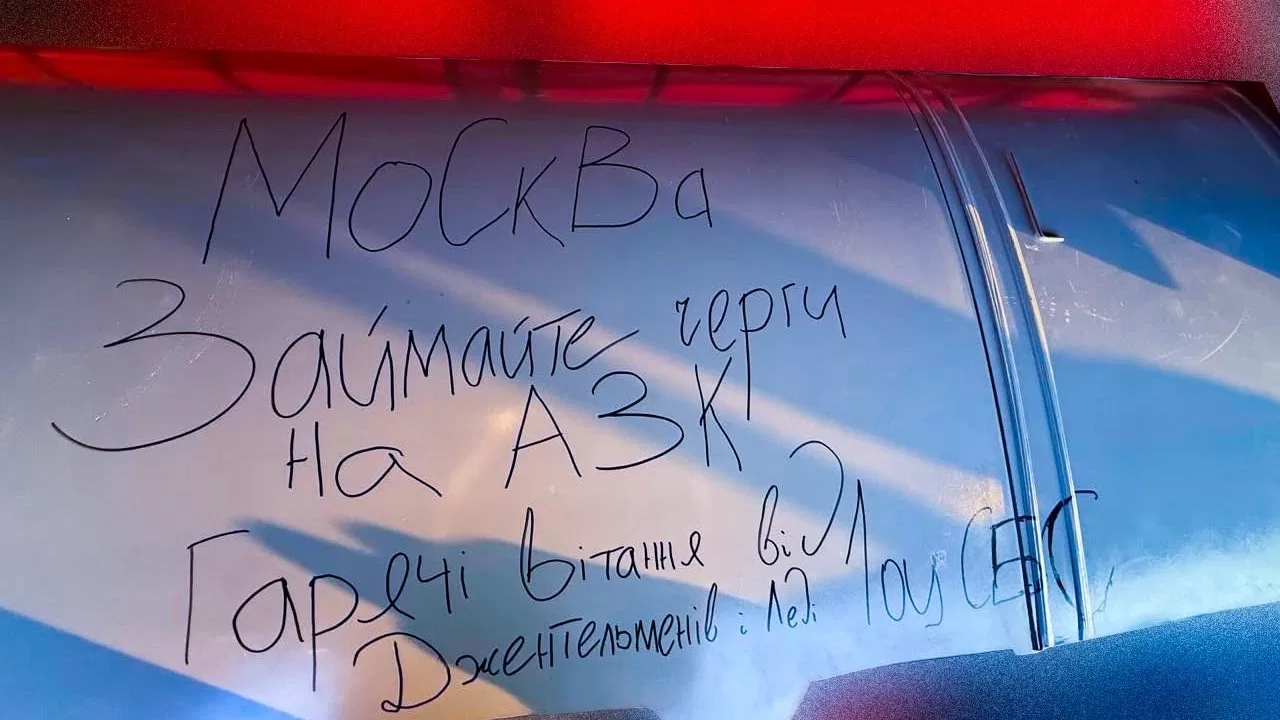 МоСкВа
Займайте черги
на АЗК
Гарячі вітання від 1оу СБС
Джентельменів і леді